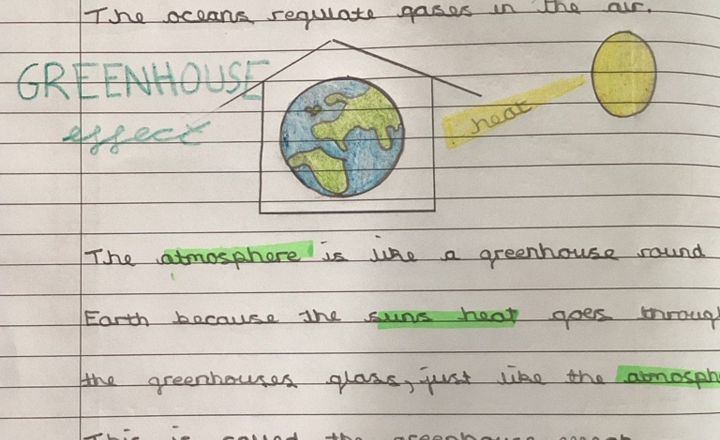 The oceans regulate gases in the air.
GREENHOUSE
effect
heat
The atmosphere is like a greenhouse round
Earth because the suns heat goes through
the greenhouses glass, just like the atmosph
This is called the greenhouse